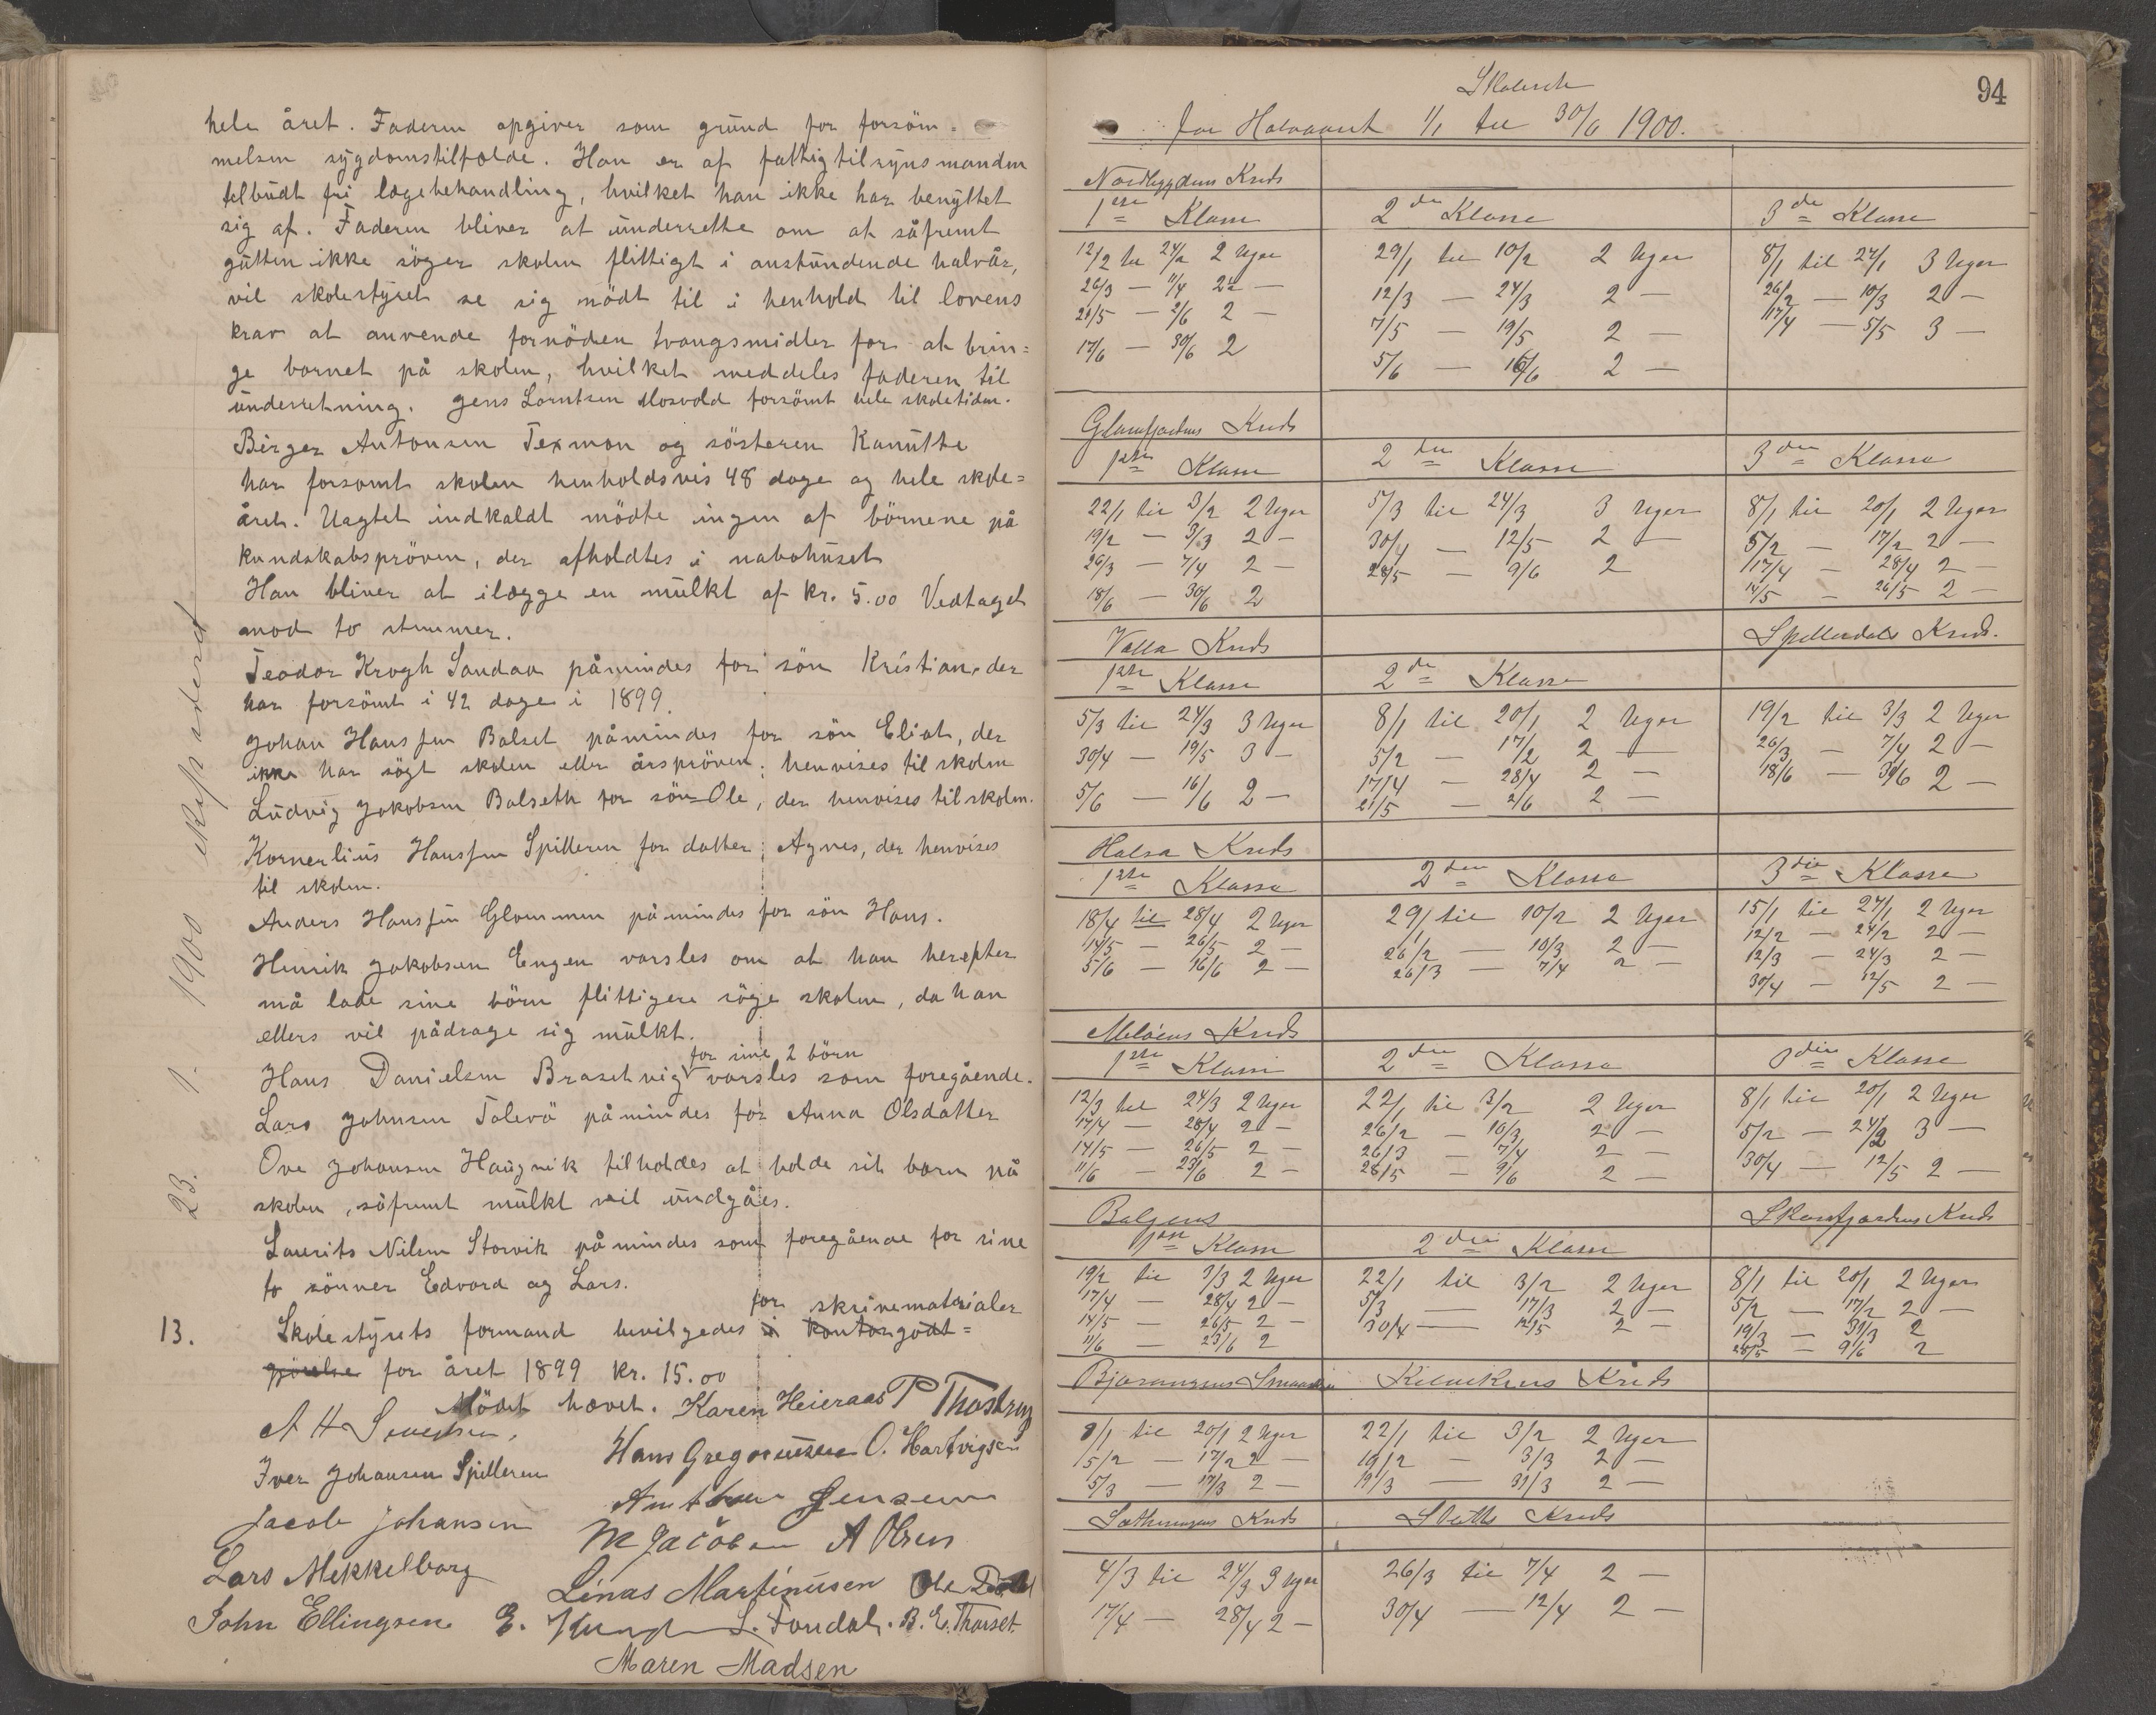 hele året. Faderen opgiver som grund for forsöm=
melsen sygdomstilfælde. Han er af fattigtilsynsmanden
tilbudt fri lægebehandling, hvilket han ikke har benyttet
sig af. Faderen bliver at underrette om at såfremt
gutten ikke söger skolen flittigt i anstundende halvår,
vil skolestyret se sig nödt til i henhold til lovens
krav at anvende fornöden tvangsmidler for at brin=
ge barnet på skolen, hvilket meddeles faderen til
underretning. Jens Lorntsen Mosvold forsömt hele skoletiden.
Birger Antonsen Texmon og sösteren Kanutte
har forsömt skolen henholdsvis 48 dage og hele skole=
året. Uagtet indkaldt mödte ingen af börnene på
kundskabspröven, der afholdtes i nabohuset
Han bliver at ilægge en mulkt af kr. 5.00 Vedtaget
mod to stemmer.
Teodor Krogh Sandaa påmindes for sön Kristian, der
har forsömt i 42 dage i 1899.
Johan Hansen Balset påmindes for sön Eliot, der
ikke har sögt skolen eller årspröven; henvises til skolen
Ludvig Jakobsen Balseth for sön Ole, der henvises til skolen.
Kornerlius Hansen Spilleren for datter Agnes, der henvises
til skolen.
Anders Hansen Glommen påmindes for sön Hans.
Henrik Jakobsen Engen varsles om at han herefter
må lade sine börn flittigere söge skolen, da han
ellers vil pådrage sig mulkt.
for sine 2 börn
Hans Danielsen Brasetvig varsles som foregående.
Lars Johnsen Talevö påmindes for Anna Olsdatter
Ove Johansen Haugvik tilholdes at holde sit barn på
skolen, såfremt mulkt vil undgåes.
Laurits Nilsen Storvik påmindes som foregående for sine
to sönner Edvard og Lars.
for skrivematerialer
13. Skolestyrets formand bevilgedes i kontorgodt=
görelse for året 1899 kr. 15.00
Mödet hævet. Karen Heieraas P Thostrup
A H Sivertsen,
Hans Gregoriussen O. Hartvigsen
Iver Johansen Spilleren
Anthon Jensen
Jacob Johansen
M Jacobsen A Olsen
Lars Mekkelborg
Linas Martinusen Ole
John Ellingsen E. L. Fondal. B. E. Thorset.
Maren Madsen
23. 1. 1900 eksp
94
Skolerute
for Halvaaret 1/1 til 30/6 1900.
Nordbygdens Kreds
1ste Klasse 2den Klasse 3de Klasse
12/2 til 24/2 2 Uger 29/1 til 10/2 2 Uger 8/1 til 27/1 3 Uger
26/3 — 11/4 2½ — 12/3 — 24/3 2 — 26/2 — 10/3 2 —
21/5 — 2/6 2 — 7/5 — 19/5 2 — 17/4 — 5/5 3 —
17/6 — 30/6 2 5/6 — 16/6 2 —
Glomfjordens Kreds
1ste Klasse 2den Klasse 3die Klasse
22/1 til 3/2 2 Uger 5/3 til 24/3 3 Uger 8/1 til 20/1 2 Uger
19/2 — 3/3 2 — 30/4 — 12/5 2 — 5/2 — 17/2 2 —
26/3 — 7/4 2 — 28/5 — 9/6 2 17/4 — 28/4 2 —
18/6 — 30/6 2 14/5 — 26/5 2 —
Valla Kreds Spilderdals Kreds.
1ste Klasse 2de Klasse
5/3 til 24/3 3 Uger 8/1 til 20/1 2 Uger 19/2 til 3/3 2 Uger
30/4 — 19/5 3 — 5/2 — 17/2 2 — 26/3 — 7/4 2 —
5/6 — 16/6 2 — 17/4 — 28/4 2 — 18/6 — 30/6 2 —
21/5 — 2/6 2 —
Halsa Kreds
1ste Klasse 2den Klasse 3die Klasse
18/4 til 28/4 2 Uger 29/1 til 10/2 2 Uger 15/1 til 27/1 2 Uger
14/5 — 26/5 2 — 26/2 — 10/3 2 — 12/2 — 24/2 2 —
5/6 — 16/6 2 — 26/3 — 7/4 2 — 12/3 — 24/3 2 —
30/4 — 12/5 2 —
Meløens Kreds
1ste Klasse 2den Klasse 3die Klasse
12/3 til 24/3 2 Uger 22/1 til 3/2 2 Uger 8/1 til 20/1 2 Uger
17/4 — 28/4 2 — 26/2 — 10/3 2 — 5/2 — 24/2 3 —
14/5 — 26/5 2 — 26/3 — 7/4 2 — 30/4 — 12/5 2 —
11/6 — 23/6 2 — 28/5 — 9/6 2 —
Bolgens Skarsfjordens Kreds
1ste Klasse 2den Klasse
19/2 til 3/3 2 Uger 22/1 til 3/2 2 Uger 8/1 til 20/1 2 Uger
17/4 — 28/4 2 — 5/3 — 17/3 2 — 5/2 — 17/2 2 —
14/5 — 26/5 2 — 30/4 — 12/5 2 — 19/3 — 31/3 2
11/6 — 23/6 2 28/5 — 9/6 2
Bjærangens Kilvikens Kreds
8/1 til 20/1 2 Uger 22/1 til 3/2 2 Uger
5/2 — 17/2 2 — 19/2 — 3/3 2 —
5/3 — 17/3 2 — 19/3 — 31/3 2 —
Kreds Støtt Kreds
4/3 til 24/3 3 Uger 26/3 til 7/4 2 —
17/4 — 28/4 2 — 30/4 — 12/4 2 —